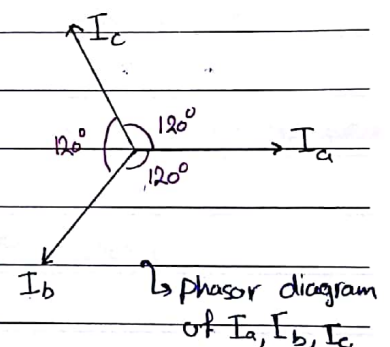 I_c
120° 120° I_a
120°
I_b ↳ phasor diagram
of I_a, I_b, I_c